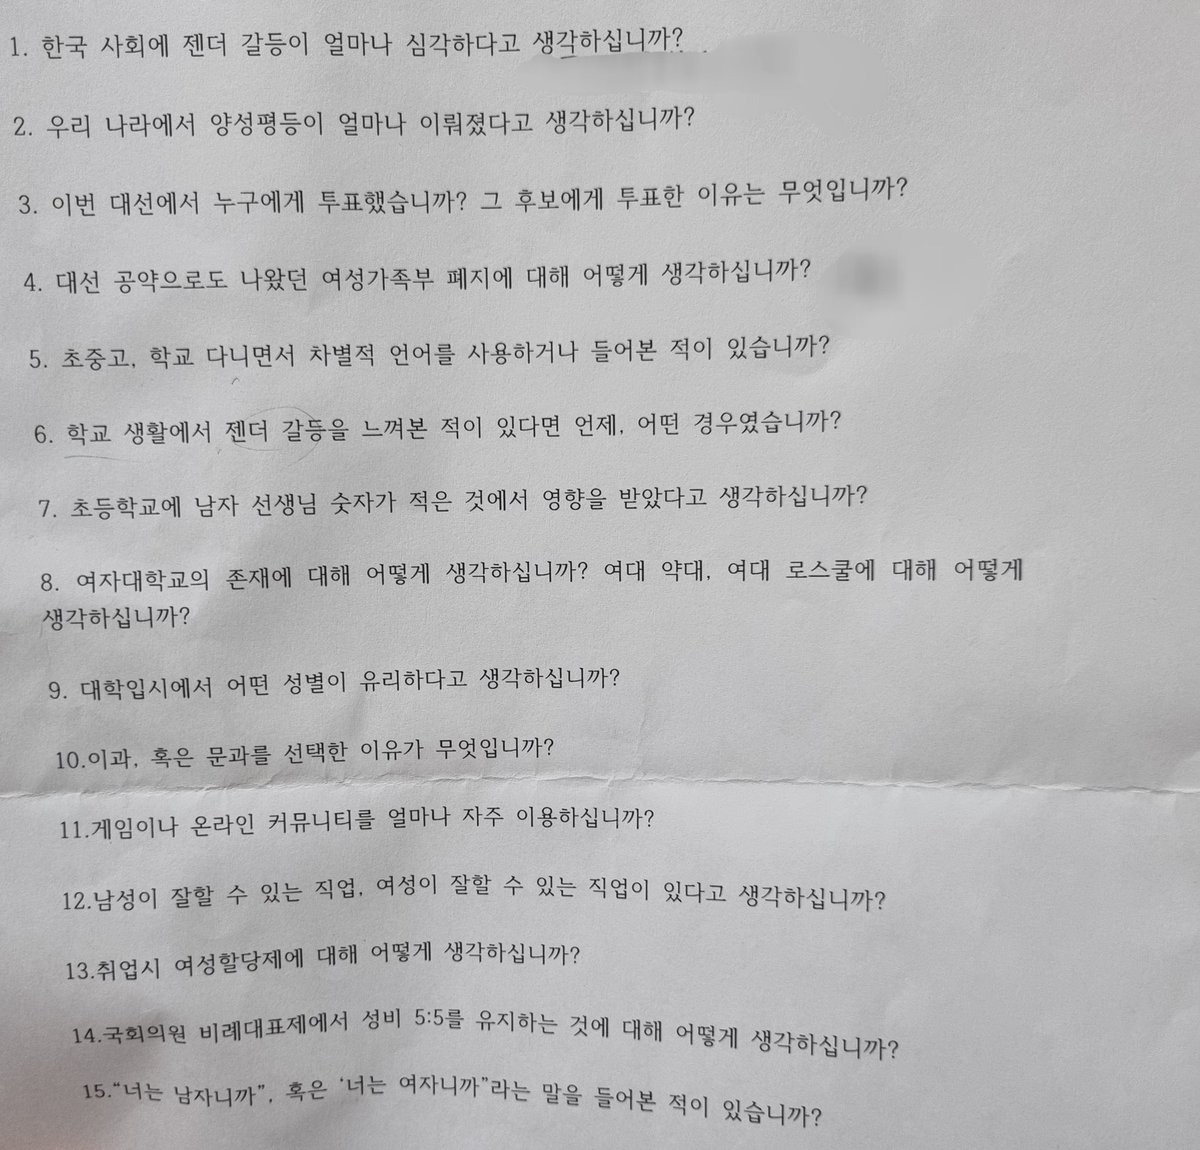 1. 한국 사회에 젠더 갈등이 얼마나 심각하다고 생각하십니까?
2. 우리 나라에서 양성평등이 얼마나 이뤄졌다고 생각하십니까?
3. 이번 대선에서 누구에게 투표했습니까? 그 후보에게 투표한 이유는 무엇입니까?
4. 대선 공약으로도 나왔던 여성가족부 폐지에 대해 어떻게 생각하십니까?
5. 초중고, 학교 다니면서 차별적 언어를 사용하거나 들어본 적이 있습니까?
6. 학교 생활에서 젠더 갈등을 느껴본 적이 있다면 언제, 어떤 경우였습니까?
7. 초등학교에 남자 선생님 숫자가 적은 것에서 영향을 받았다고 생각하십니까?
8. 여자대학교의 존재에 대해 어떻게 생각하십니까? 여대 약대, 여대 로스쿨에 대해 어떻게
생각하십니까?
9. 대학입시에서 어떤 성별이 유리하다고 생각하십니까?
10.이과, 혹은 문과를 선택한 이유가 무엇입니까?
11.게임이나 온라인 커뮤니티를 얼마나 자주 이용하십니까?
12.남성이 잘할 수 있는 직업, 여성이 잘할 수 있는 직업이 있다고 생각하십니까?
13.취업시 여성할당제에 대해 어떻게 생각하십니까?
14.국회의원 비례대표제에서 성비 5:5를 유지하는 것에 대해 어떻게 생각하십니까?
15.“너는 남자니까”, 혹은 ‘너는 여자니까”라는 말을 들어본 적이 있습니까?